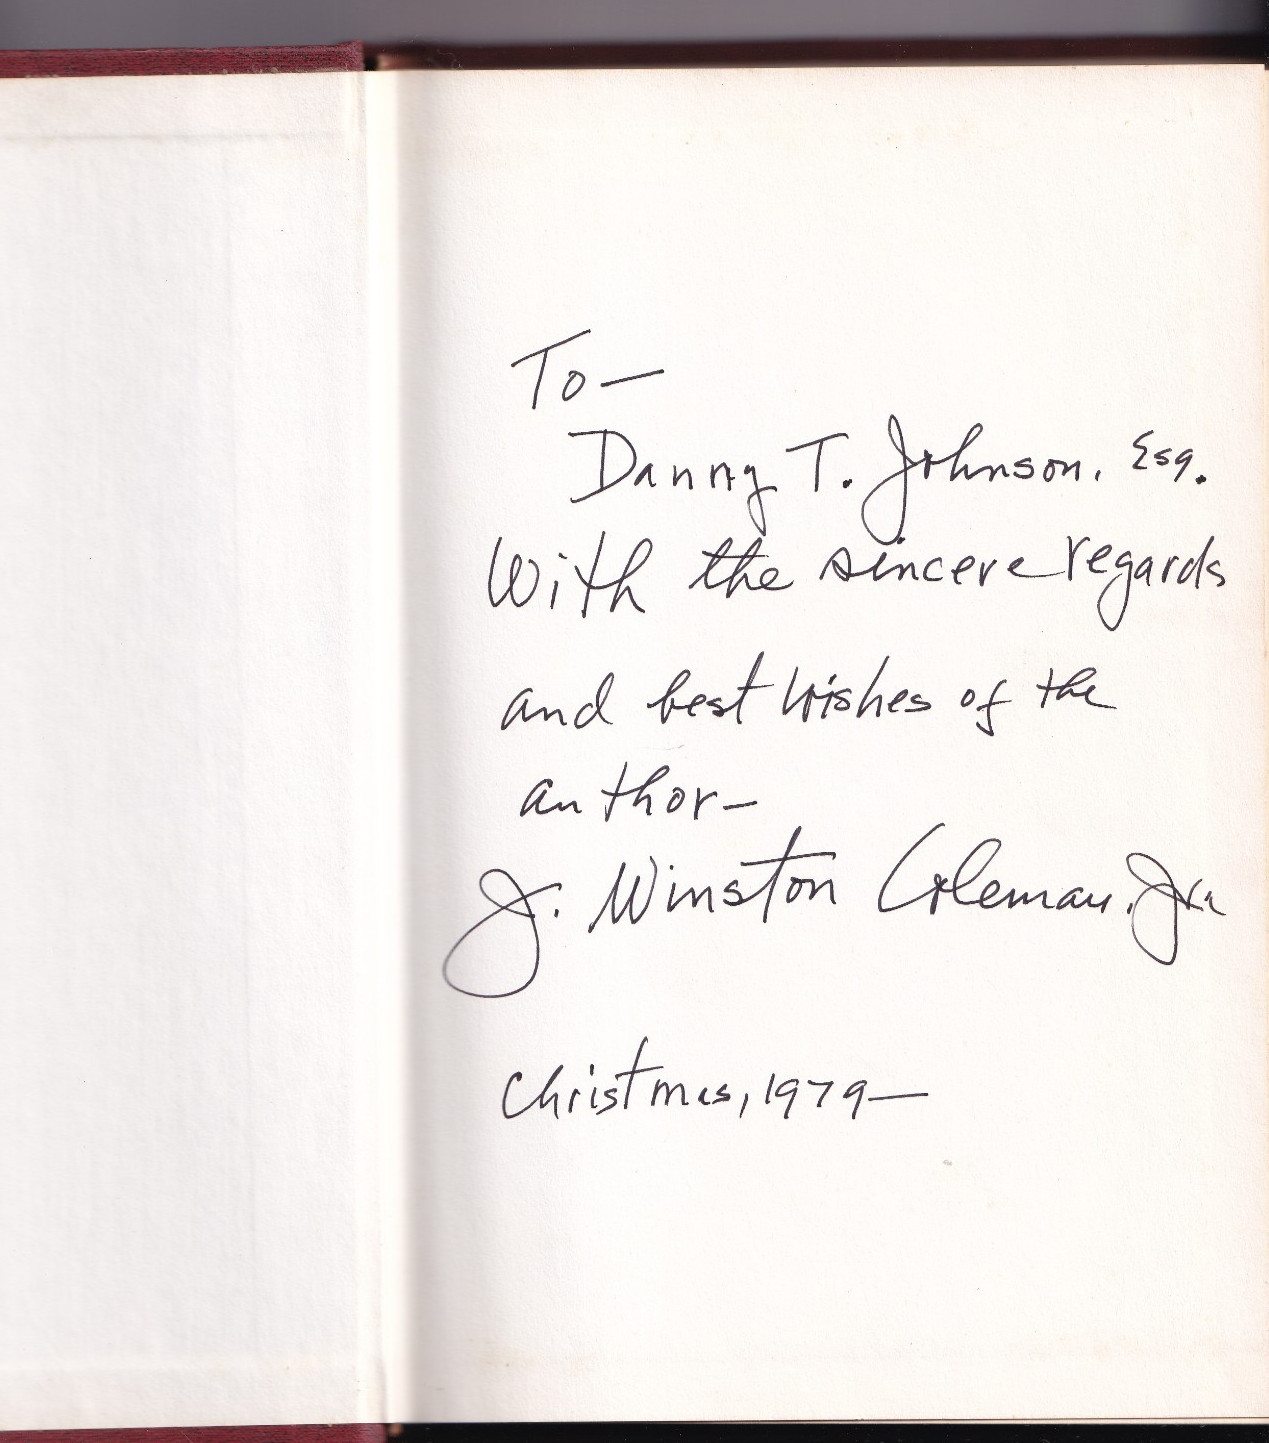 To—
Danny T. Johnson, Esq.
With the sincere regards
and best wishes of the
author—
J. Winston Coleman, Jr.
Christmas, 1979—